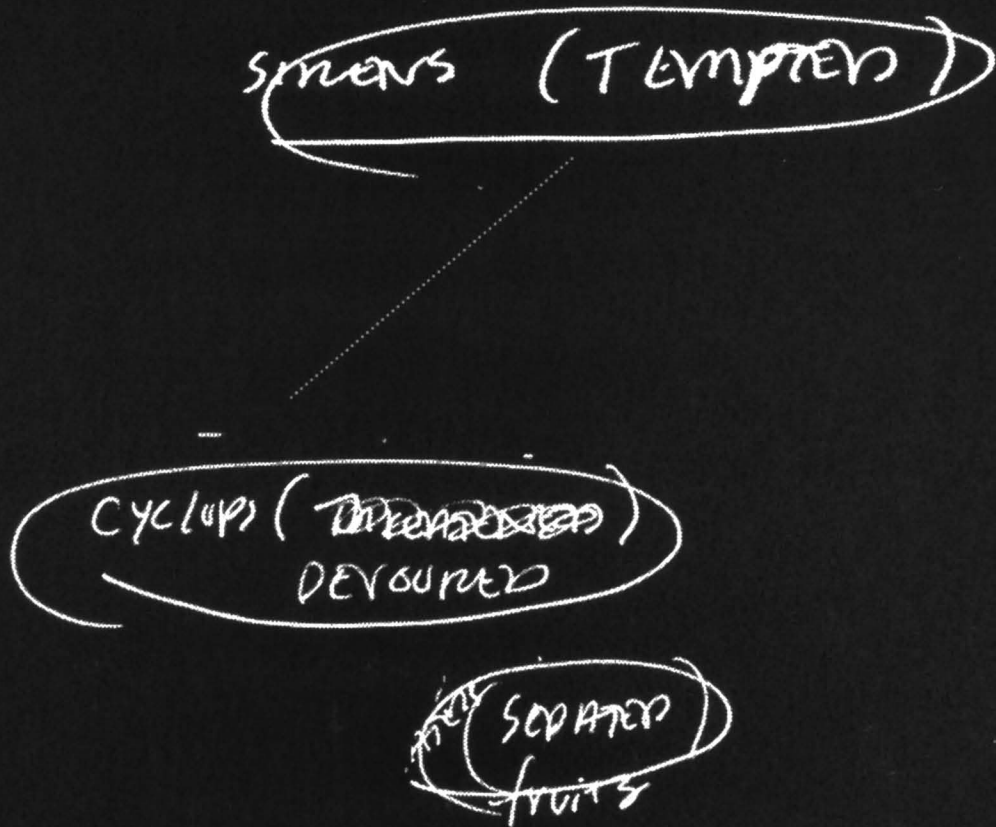 SIRENS (TEMPTED)
CYCLOPS (
DEVOURED
(SEDATED)
fruits